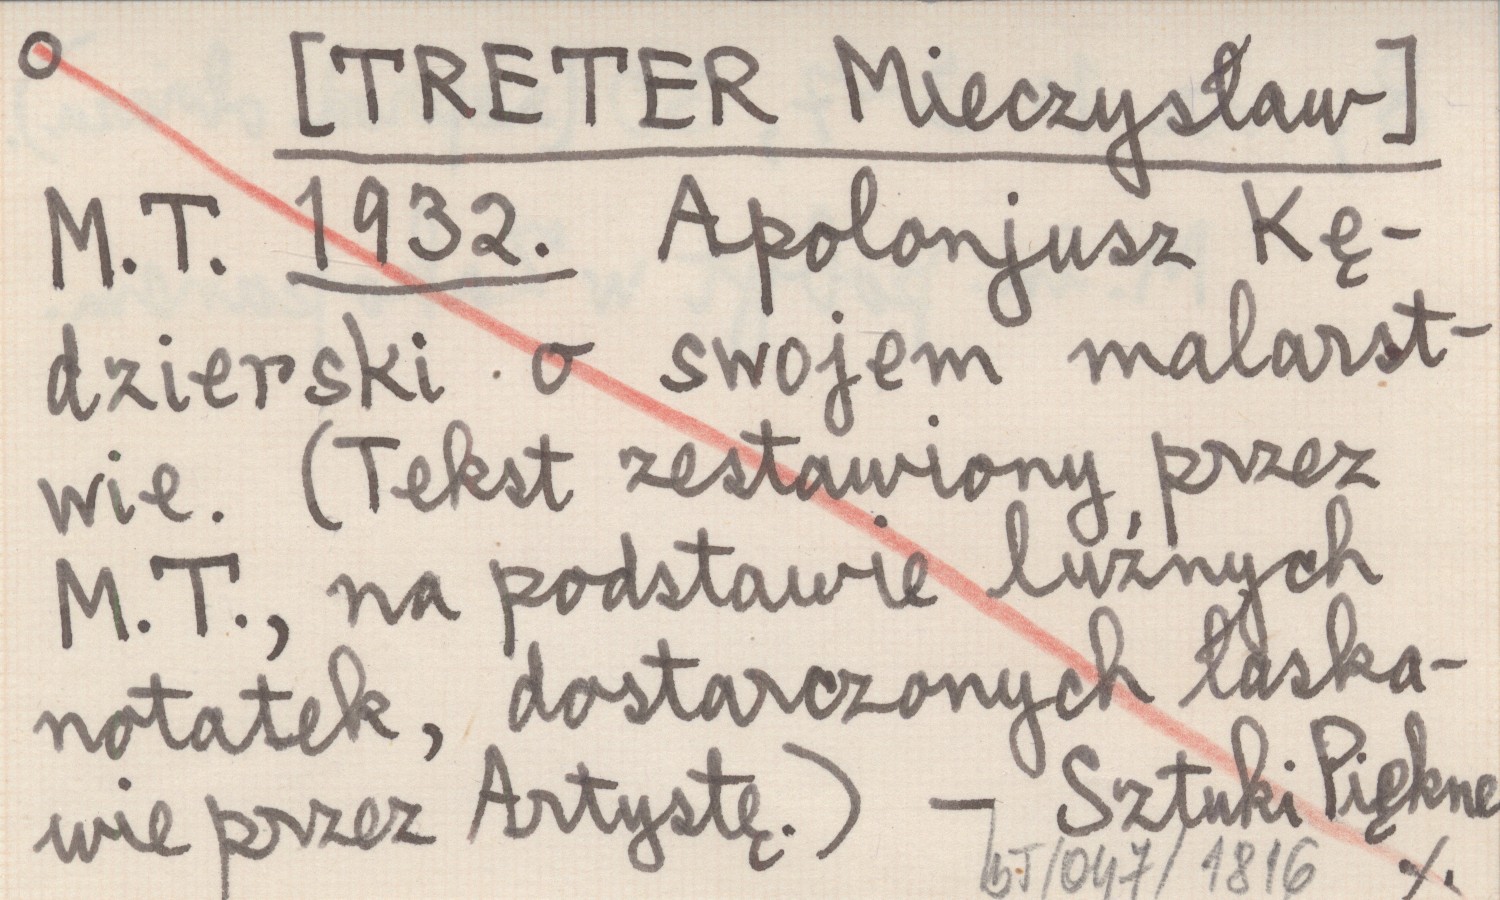 [TRETER Mieczysław]
M.T. 1932. Apolonjusz Kę-
dzierski o swojem malarst-
wie. (Tekst zestawiony, przez
M.T., na podstawie luźnych
notatek, dostarczonych łaska-
wie przez Artystę.) — Sztuki Piękne
bJ/047/1816 ./.